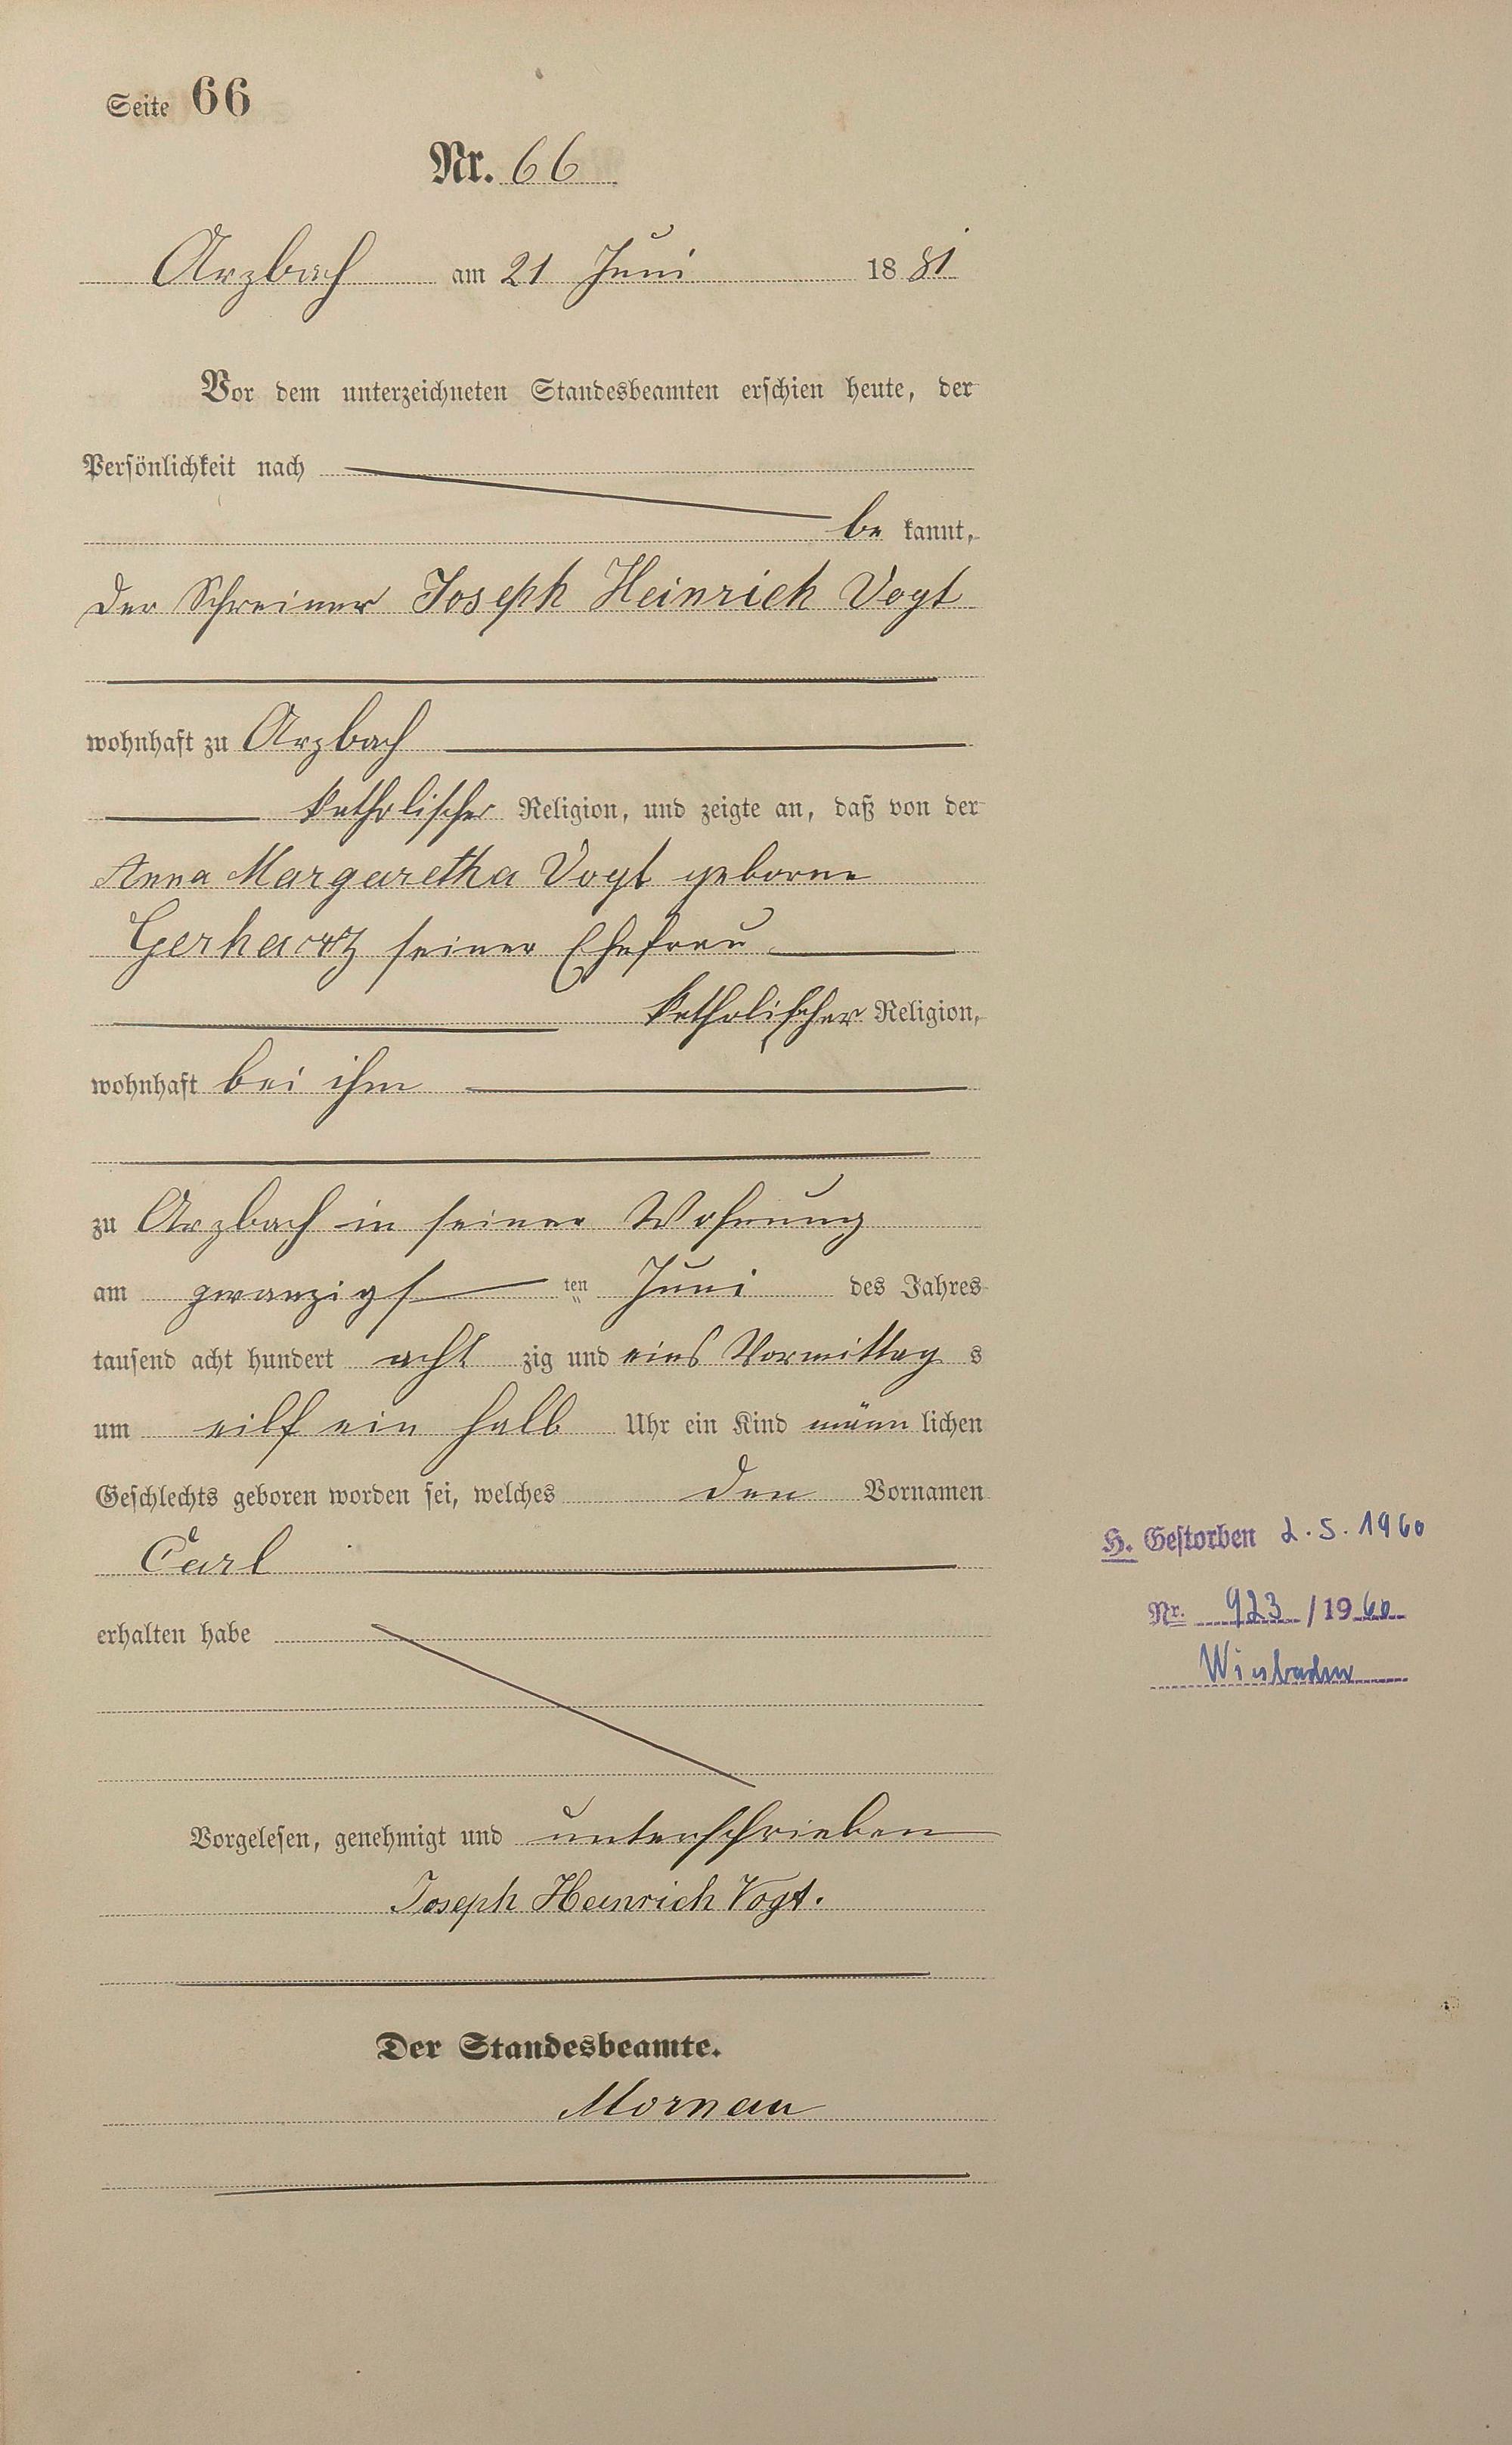 Seite 66
Nr. 66
Arzbach am 21 Juni 1881
Vor dem unterzeichneten Standesbeamten erschien heute, der
Persönlichkeit nach
be kannt,
der Schreiner Joseph Heinrich Vogt
wohnhaft zu Arzbach
katholischer Religion, und zeigte an, daß von der
Anna Margaretha Vogt geborne
Gerhartz seiner Ehefrau
katholischer Religion,
wohnhaft bei ihm
zu Arzbach in seiner Wohnung
am zwanzigs ten Juni des Jahres
tausend acht hundert acht zig und eins Vormittag s
um eilf ein halb Uhr ein Kind männ lichen
Geschlechts geboren worden sei, welches den Vornamen
Carl
H. Gestorben 2.5.1960
erhalten habe
Nr. 923/1960
Wiesbaden
Vorgelesen, genehmigt und unterschrieben
Joseph Heinrich Vogt.
Der Standesbeamte.
Mornau